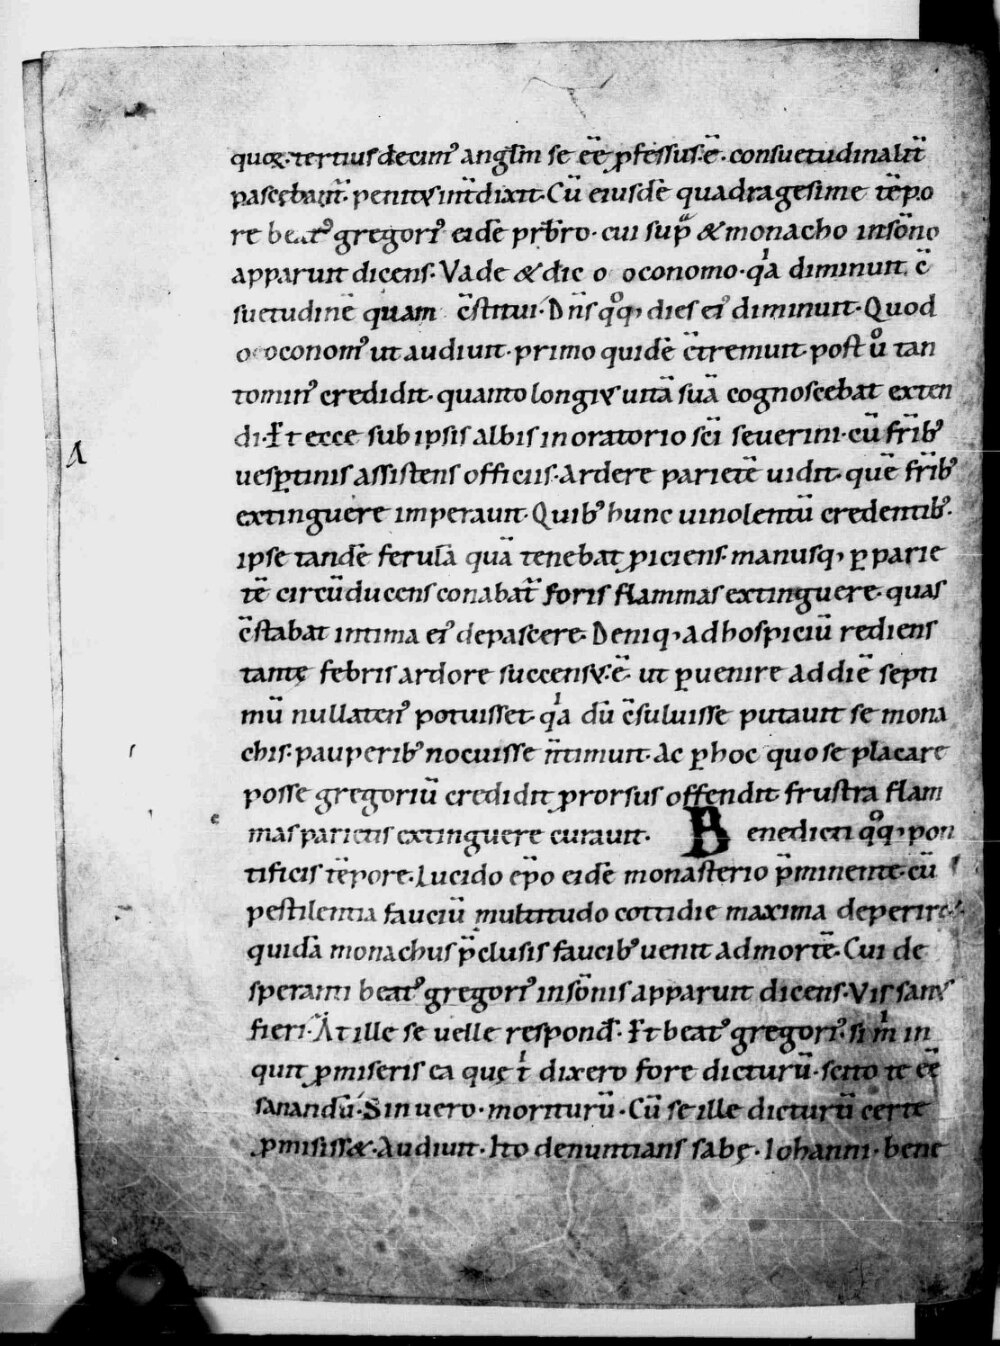 quoꝝ· tertius decim᾽ angl̄m se eē ꝓfessus·ē· consuetudinalit̄
pascebant̄· penitꝰ int̄dixit· Cū eiusdē quadragesime tēpo
re beat᾽ gregori᾽ eidē prb̄ro· cui sup̄ª & monacho insōno
apparuit dicens· Vade & dic oeconomo· qͥa diminuit c̄
suetudinē quam c̄stitui· Dn̄s qͦq; dies ei᾽ diminuit· Quod
oeconom᾽ ut audiuit· primo quidē c̄tremuit· post uͦ tan
tomin᾽ credidit· quanto longiꝰ uitā suā cognoscebat exten
di· Et ecce sub ipsis albis in oratorio sc̄i seuerini· cū fr̄ib᾽
uesꝑtinis assistens officiis· Ardere parietē uidit· quē fr̄ib᾽
extinguere imperauit· Quib᾽ hunc uinolentū credentib᾽·
ipse tandē ferulā quā tenebat ꝓiciens· manusq; ꝑ parie
tē circūducens conabat̄ foris flammas extinguere· quas
c̄stabat intima ei᾽ depascere· Deniq; ad hospiciū rediens
tantę febris ardore succensꝰ·ē· ut ꝑuenire ad diē septi
mū nullaten᾽ potuisset· qͥa dū c̄suluisse putauit se mona
chis· pauperib᾽ nocuisse n̄ timuit· Ac ꝑhoc quo se placare
posse gregoriū credidit ꝓrorsus offendit· frustra flam
mas parietis extinguere curauit· Benedicti qͦq; pon
tificis tēpore· Lucido ep̄o eidē monasterio p̄minente· cū
pestilentia fauciū multitudo cottidie maxima deperiret·
quidā monachus p̄clusis faucib᾽ uenit ad mortē· Cui de
speranti beat᾽ gregori᾽ insōnis apparuit dicens· Vis sanꝰ
fieri· At ille se uelle respond̄· Et beat᾽ gregori᾽· si mͥ in
quit ꝓmiseris ea quę tͥ dixero fore dicturū· scito te eē
sanandū· Sin uero· moriturū· Cū se ille dicturū certe
ꝓmisiss&· Audiuit· Ito denuntians sabę· Iohanni· bene